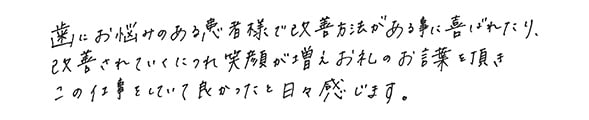 歯にお悩みのある患者様で改善方法がある事に喜ばれたり、
改善されていくにつれ笑顔が増えお礼のお言葉を頂き
この仕事をしていて良かったと日々感じます。